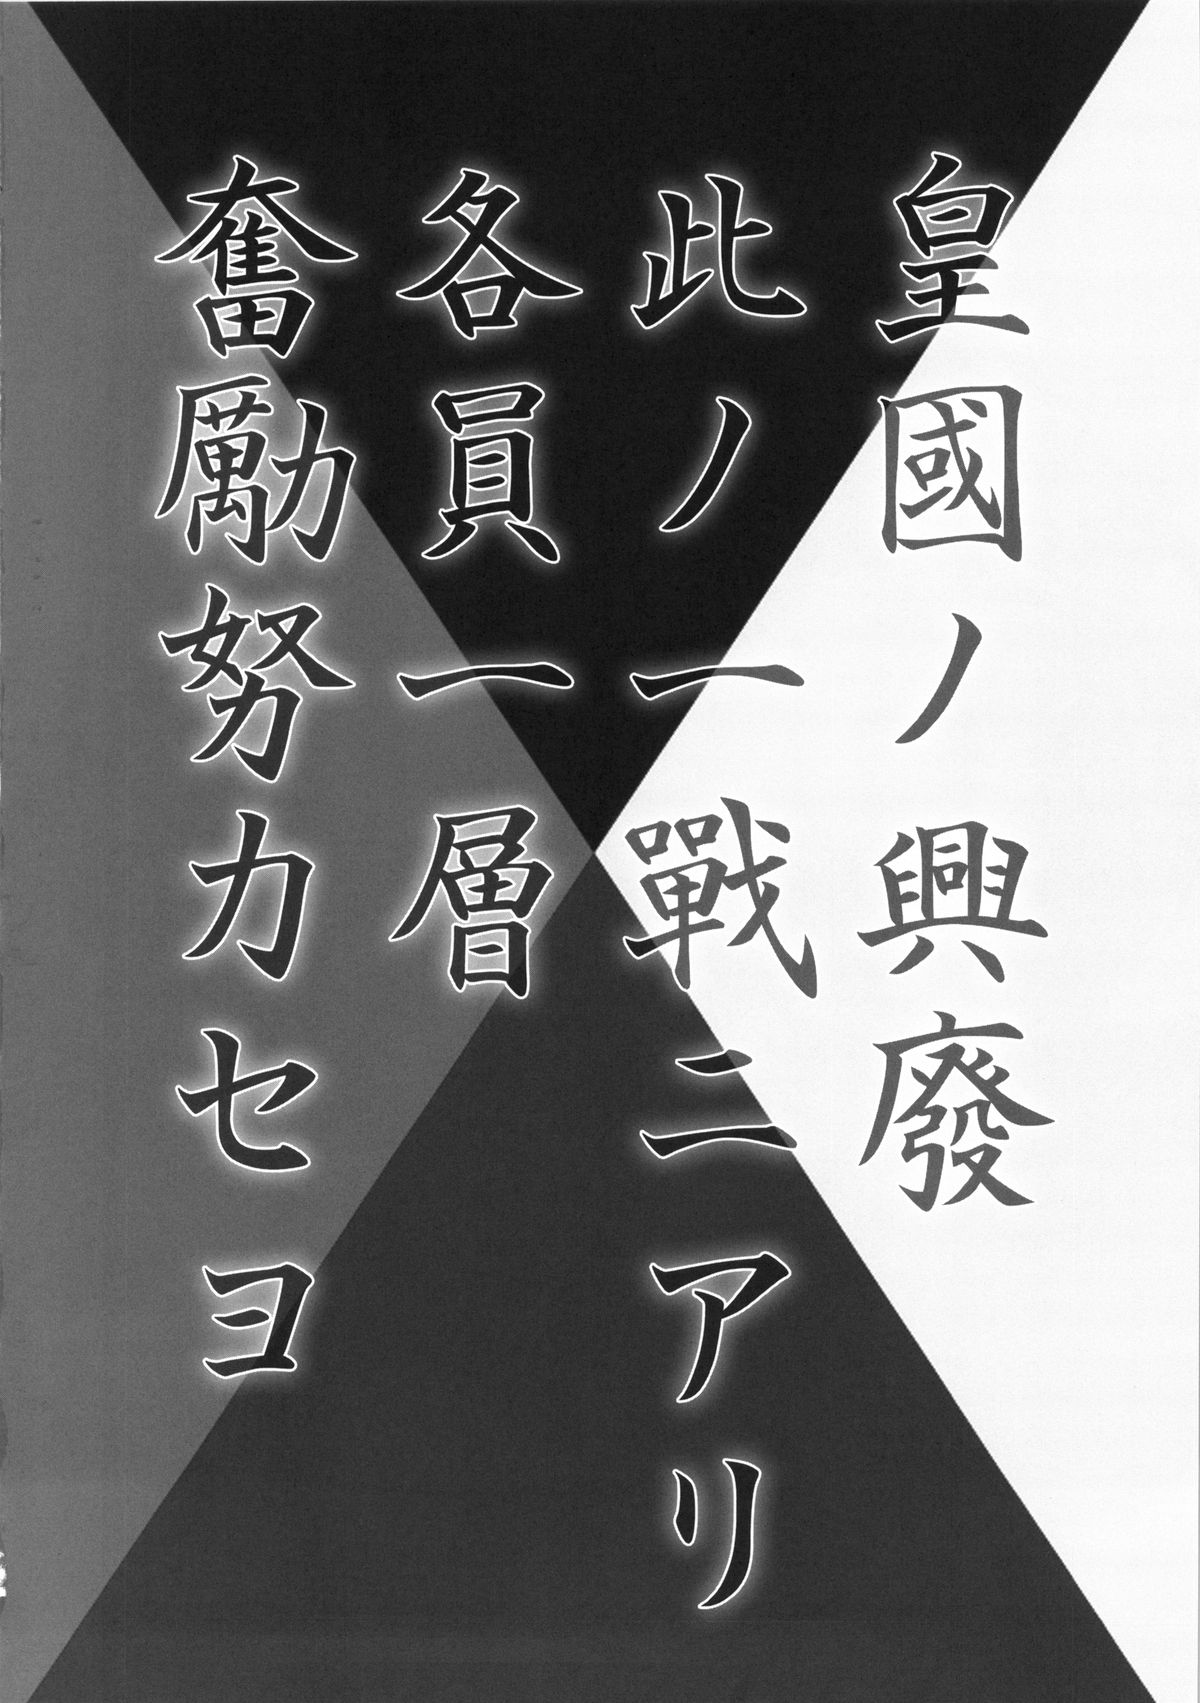 皇國ノ興廢
此ノ一戰ニアリ
各員一層
奮勵努力セヨ